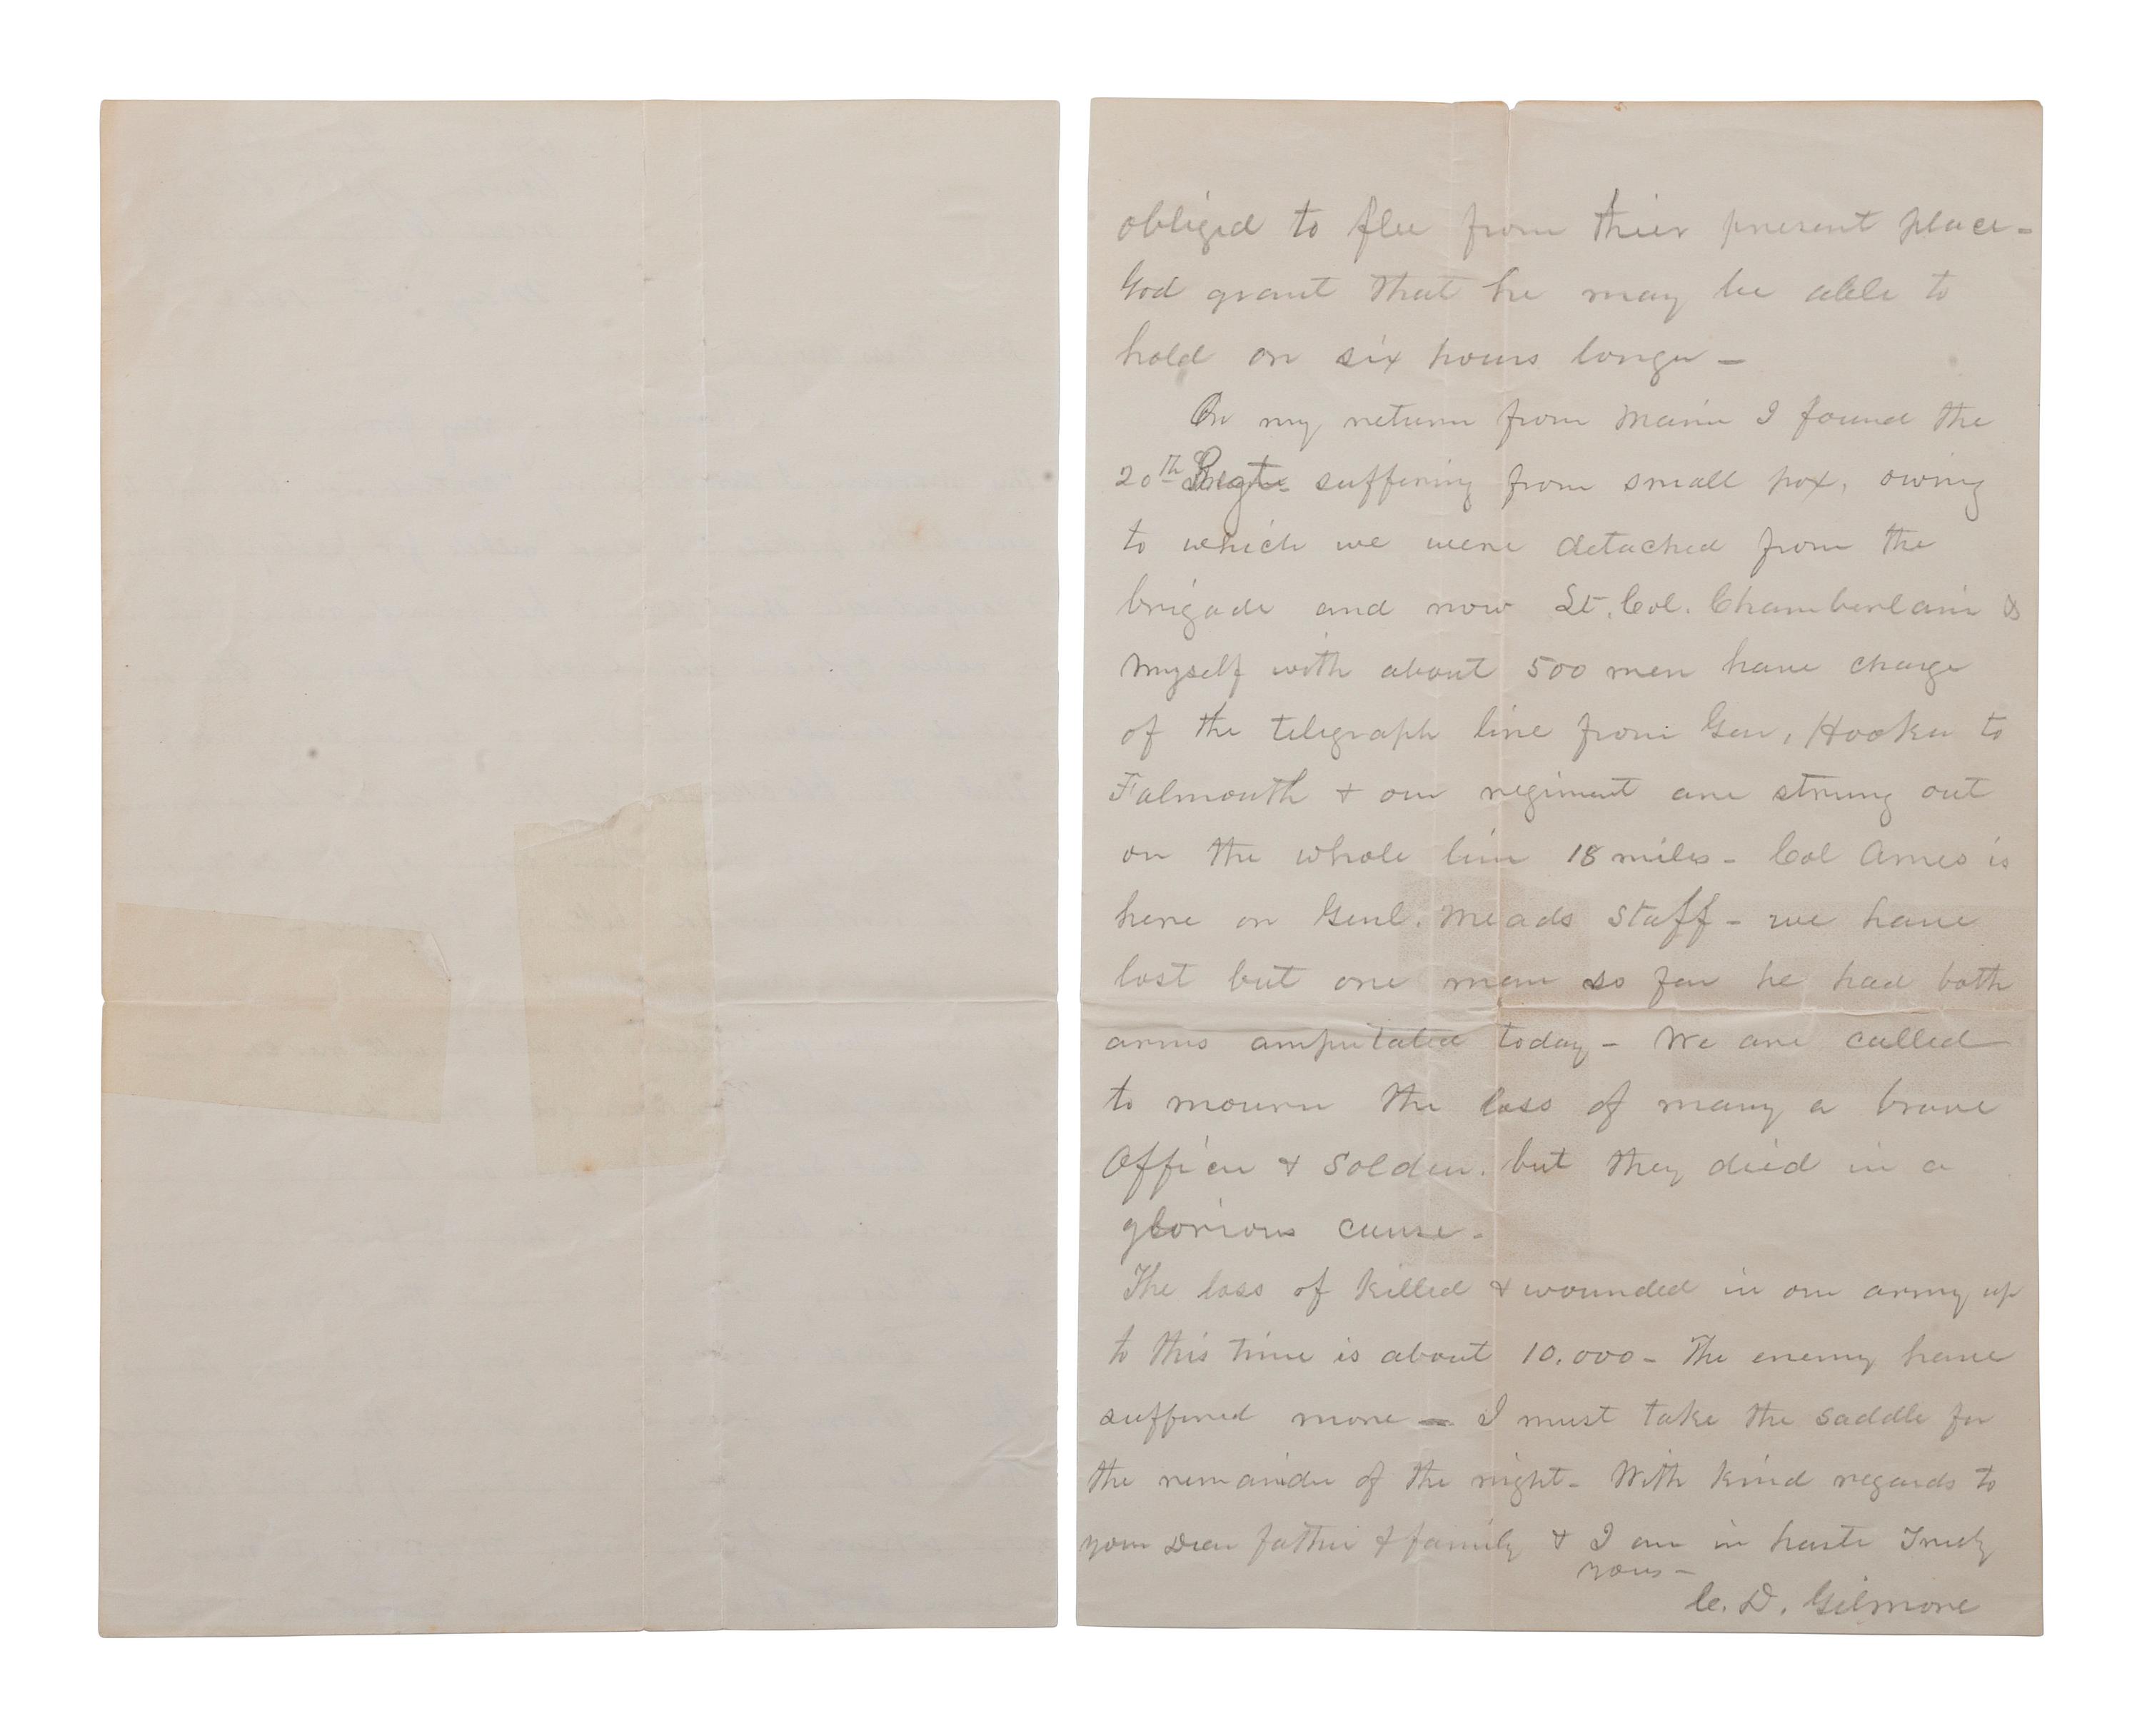 obliged to flee from thier present place -
God grant that he may be able to
hold on six hours longer -
On my return from Maine I found the
20th Regt suffering from small pox, owing
to which we were detached from the
brigade and now Lt. Col. Chamberlain &
myself with about 500 men have charge
of the telegraph line from Gen, Hooker to
Falmouth & our regiment are strung out
on the whole line 18 miles - Col Ames is
here on Genl. Meads Staff - we have
lost but one man so far he had both
arms amputated today - We are called
to mourn the loss of many a brave
Officer & Solder. but they died in a
glorious cause.
The loss of killed & wounded in our army up
to this time is about 10.000 - The enemy have
suffered more - I must take the saddle for
the remainder of the night - With kind regards to
your Dear father & family & I am in haste Truly
yours -
C. D. Gilmore